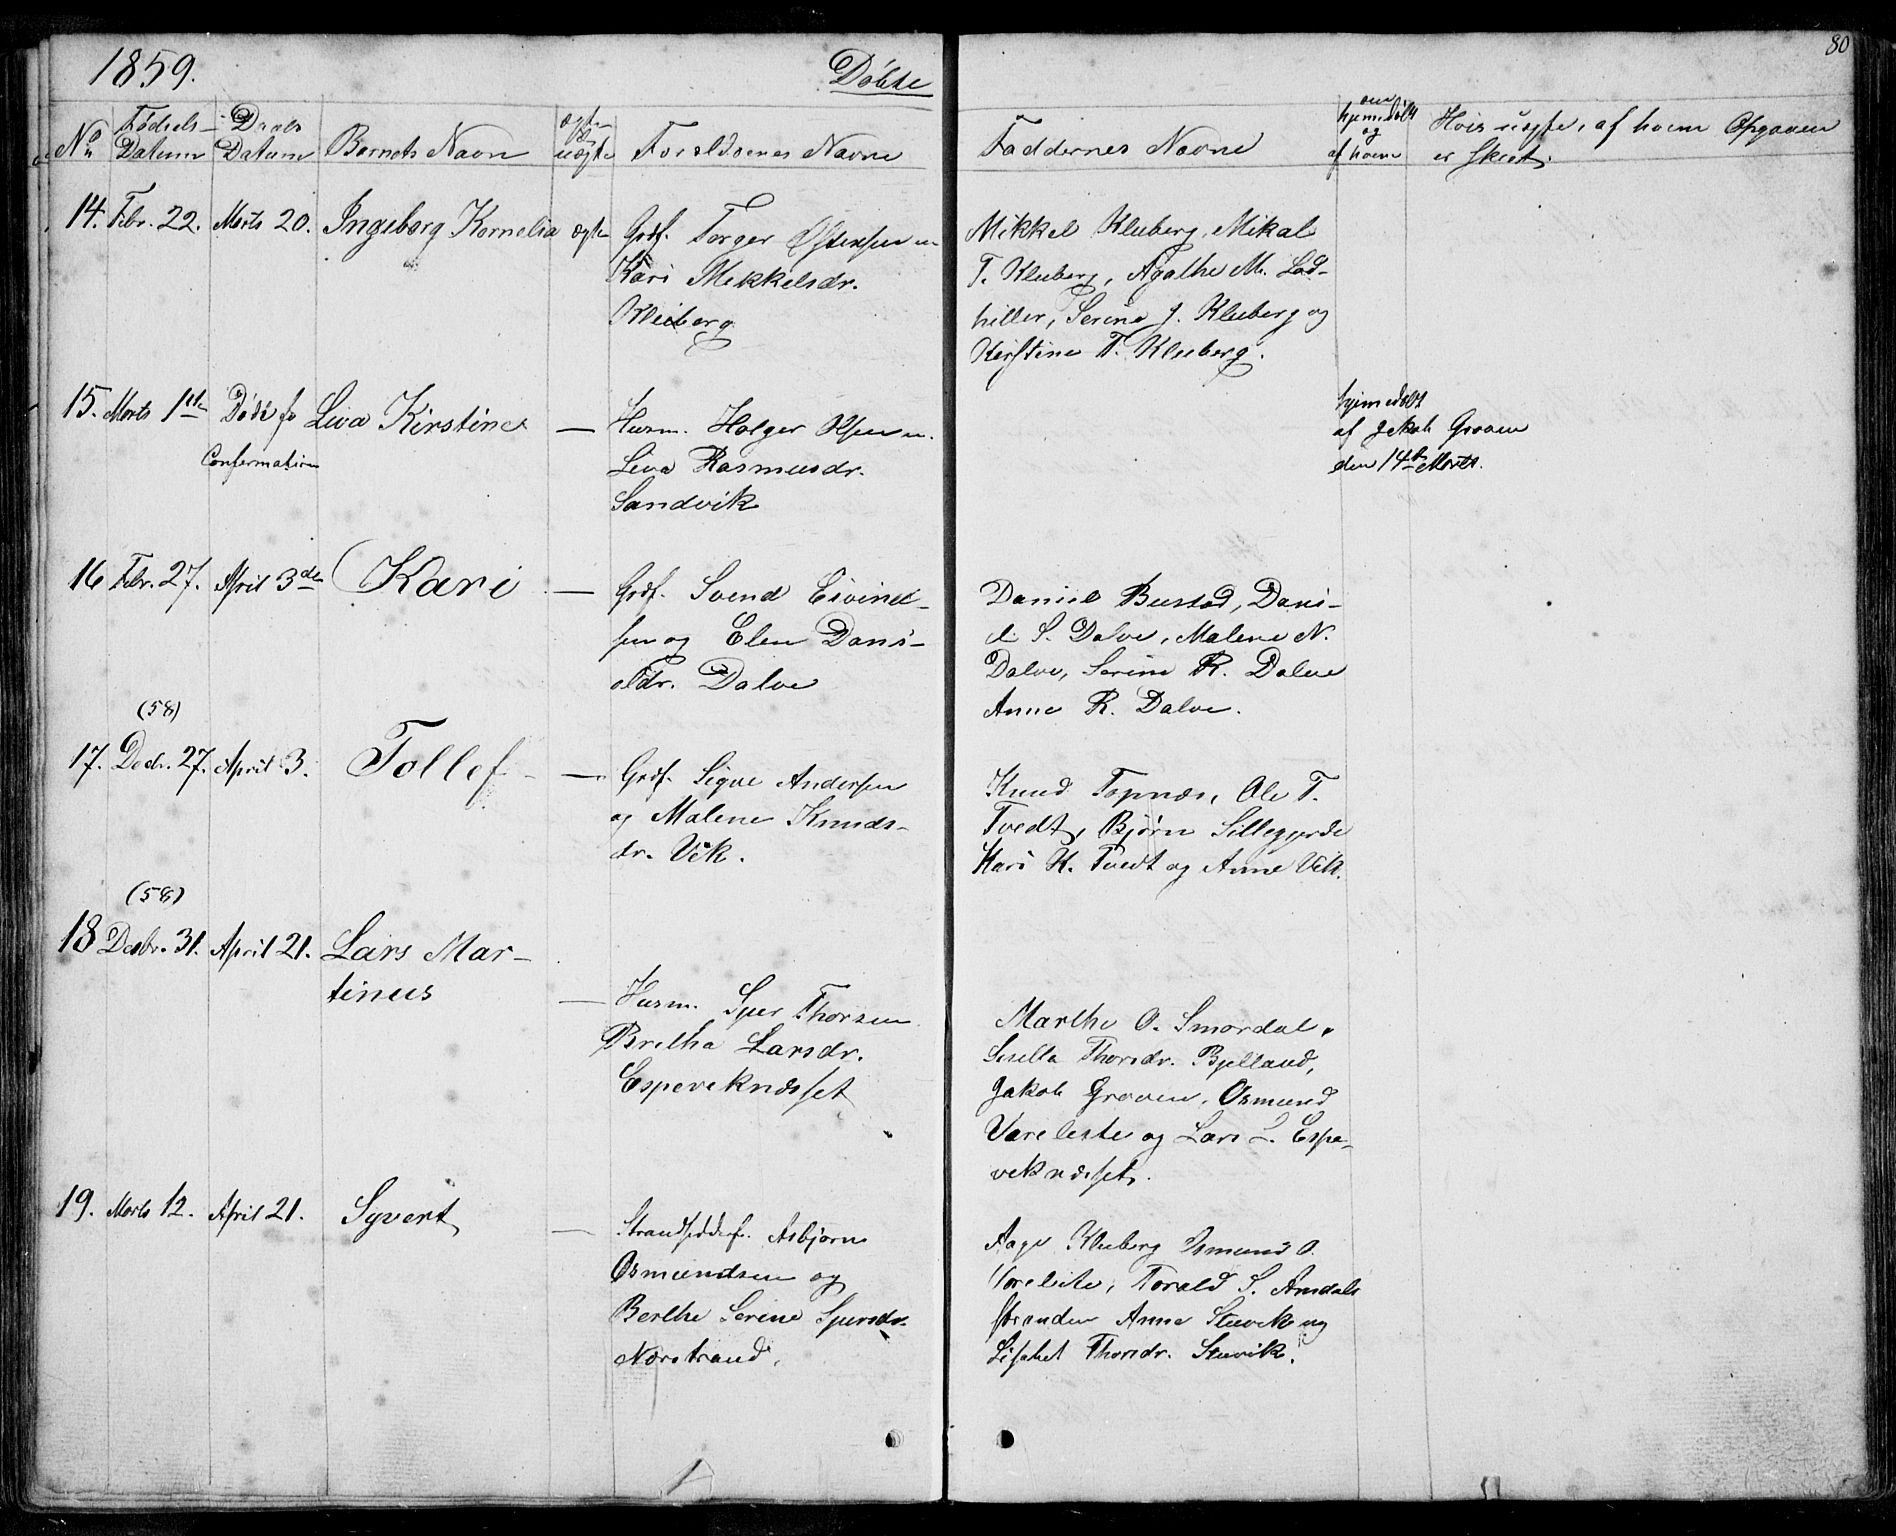 1859.
Döbte
80
No
Födsels-
Datum
Daabs
Datum
Barnets Navn
ægte
uægte
Forældrenes Navne
Faddernes Navne
om
hjemedöbt
og
af hvem
Hvis uægte, af hvem Opgaven
er skeet.
14. Febr. 22. Marts 20. Ingeborg Kornelia ægte
Grdf. Torger
Kari Mikkelsdr.
Kleiberg
Mikkel Kleiberg, Mikal
T. Kleiberg, Agathe M. Lad-
hiller, Serine J. Kleiberg og
Kirstine T. Kleiberg.
15. Marts 1ste Döde för
Confermation
Liva Kirstine —
Husm. Holger Olsen
Liva Rasmusdr.
Sandvik
hjemedöbt
af Jakob Groven
den 14de Marts.
16 Febr. 27. April 3de Kari —
Grdf. Svend Eivind-
sen og Elen Dani-
eldr. Dalve
Daniel Bustad, Dani-
el S. Dalve, Malene N.
Dalve, Serine R. Dalve
Anne R. Dalve.
(58)
17. Decbr. 27. April 3. Tollef —
Grdf. Sigve Andersen
og Malene Knuds-
dr. Vik.
Knud Topnæs, Ole T.
Tvedt, Björn Sillegjerde
Kari K. Tvedt og Anne Vik.
(58)
18 Decbr. 31. April 21. Lars Mar-
tinus
— Husm. Sper Thorsen
Bretha Larsdr.
Espeveknæsset
Marthe O. Smördal,
Sisella Thorsdr. Bjelland,
Jakob Groven, Osmund
Vareleite og Lars L. Espe-
veknæsset.
19. Marts 12. April 21. Syvert —
Strandsidderf. Asbjörn
Osmundsen og
Berthe Serine Spersdr.
Nærstrand.
Aage Kleiberg Osmund O.
Vareleite, Torald S. Amdals
stranden Anne Stuvik og
Lisabet Thorsdr. Stuvik.